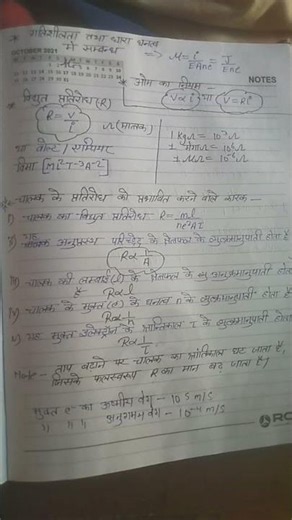 * गतिशीलता तथा धारा घनत्व
में सम्बन्ध ⇒ μ = i/EAne = J/Ene
OCTOBER 2021
NOTES
* ओम का नियम -
V ∝ i या V = Ri
* विद्युत प्रतिरोध (R)
R = V/i
Ω (मात्रक)
1 KΩ = 10³Ω
1 MΩ = 10⁶Ω
या वोल्ट / एम्पियर
विमा [ML²T⁻³A⁻²]
चालक के प्रतिरोध को प्रभावित करने वाले कारक -
चालक का विद्युत प्रतिरोध R = ml/ne²Aτ
यह
चालक अनुप्रस्थ परिच्छेद के क्षेत्रफल के व्युत्क्रमानुपाती होता है
R ∝ 1/A
चालक की लम्बाई (l) के अनुक्रमानुपाती होता
है R ∝ l
चालक के मुक्त (e) के घनत्व n के व्युत्क्रमानुपाती होता है
R ∝ 1/n
यह मुक्त इलेक्ट्रॉन के श्रांतिकाल τ के व्युत्क्रमानुपाती होता
R ∝ 1/τ
Note - ताप बढ़ाने पर चालक का श्रांतिकाल घट जाता है,
जिसके फलस्वरूप R का मान बढ़ जाता है।
मुक्त e⁻ का ऊष्मीय वेग - 10⁵ m/s
" " " अनुगमन वेग - 10⁻⁴ m/s